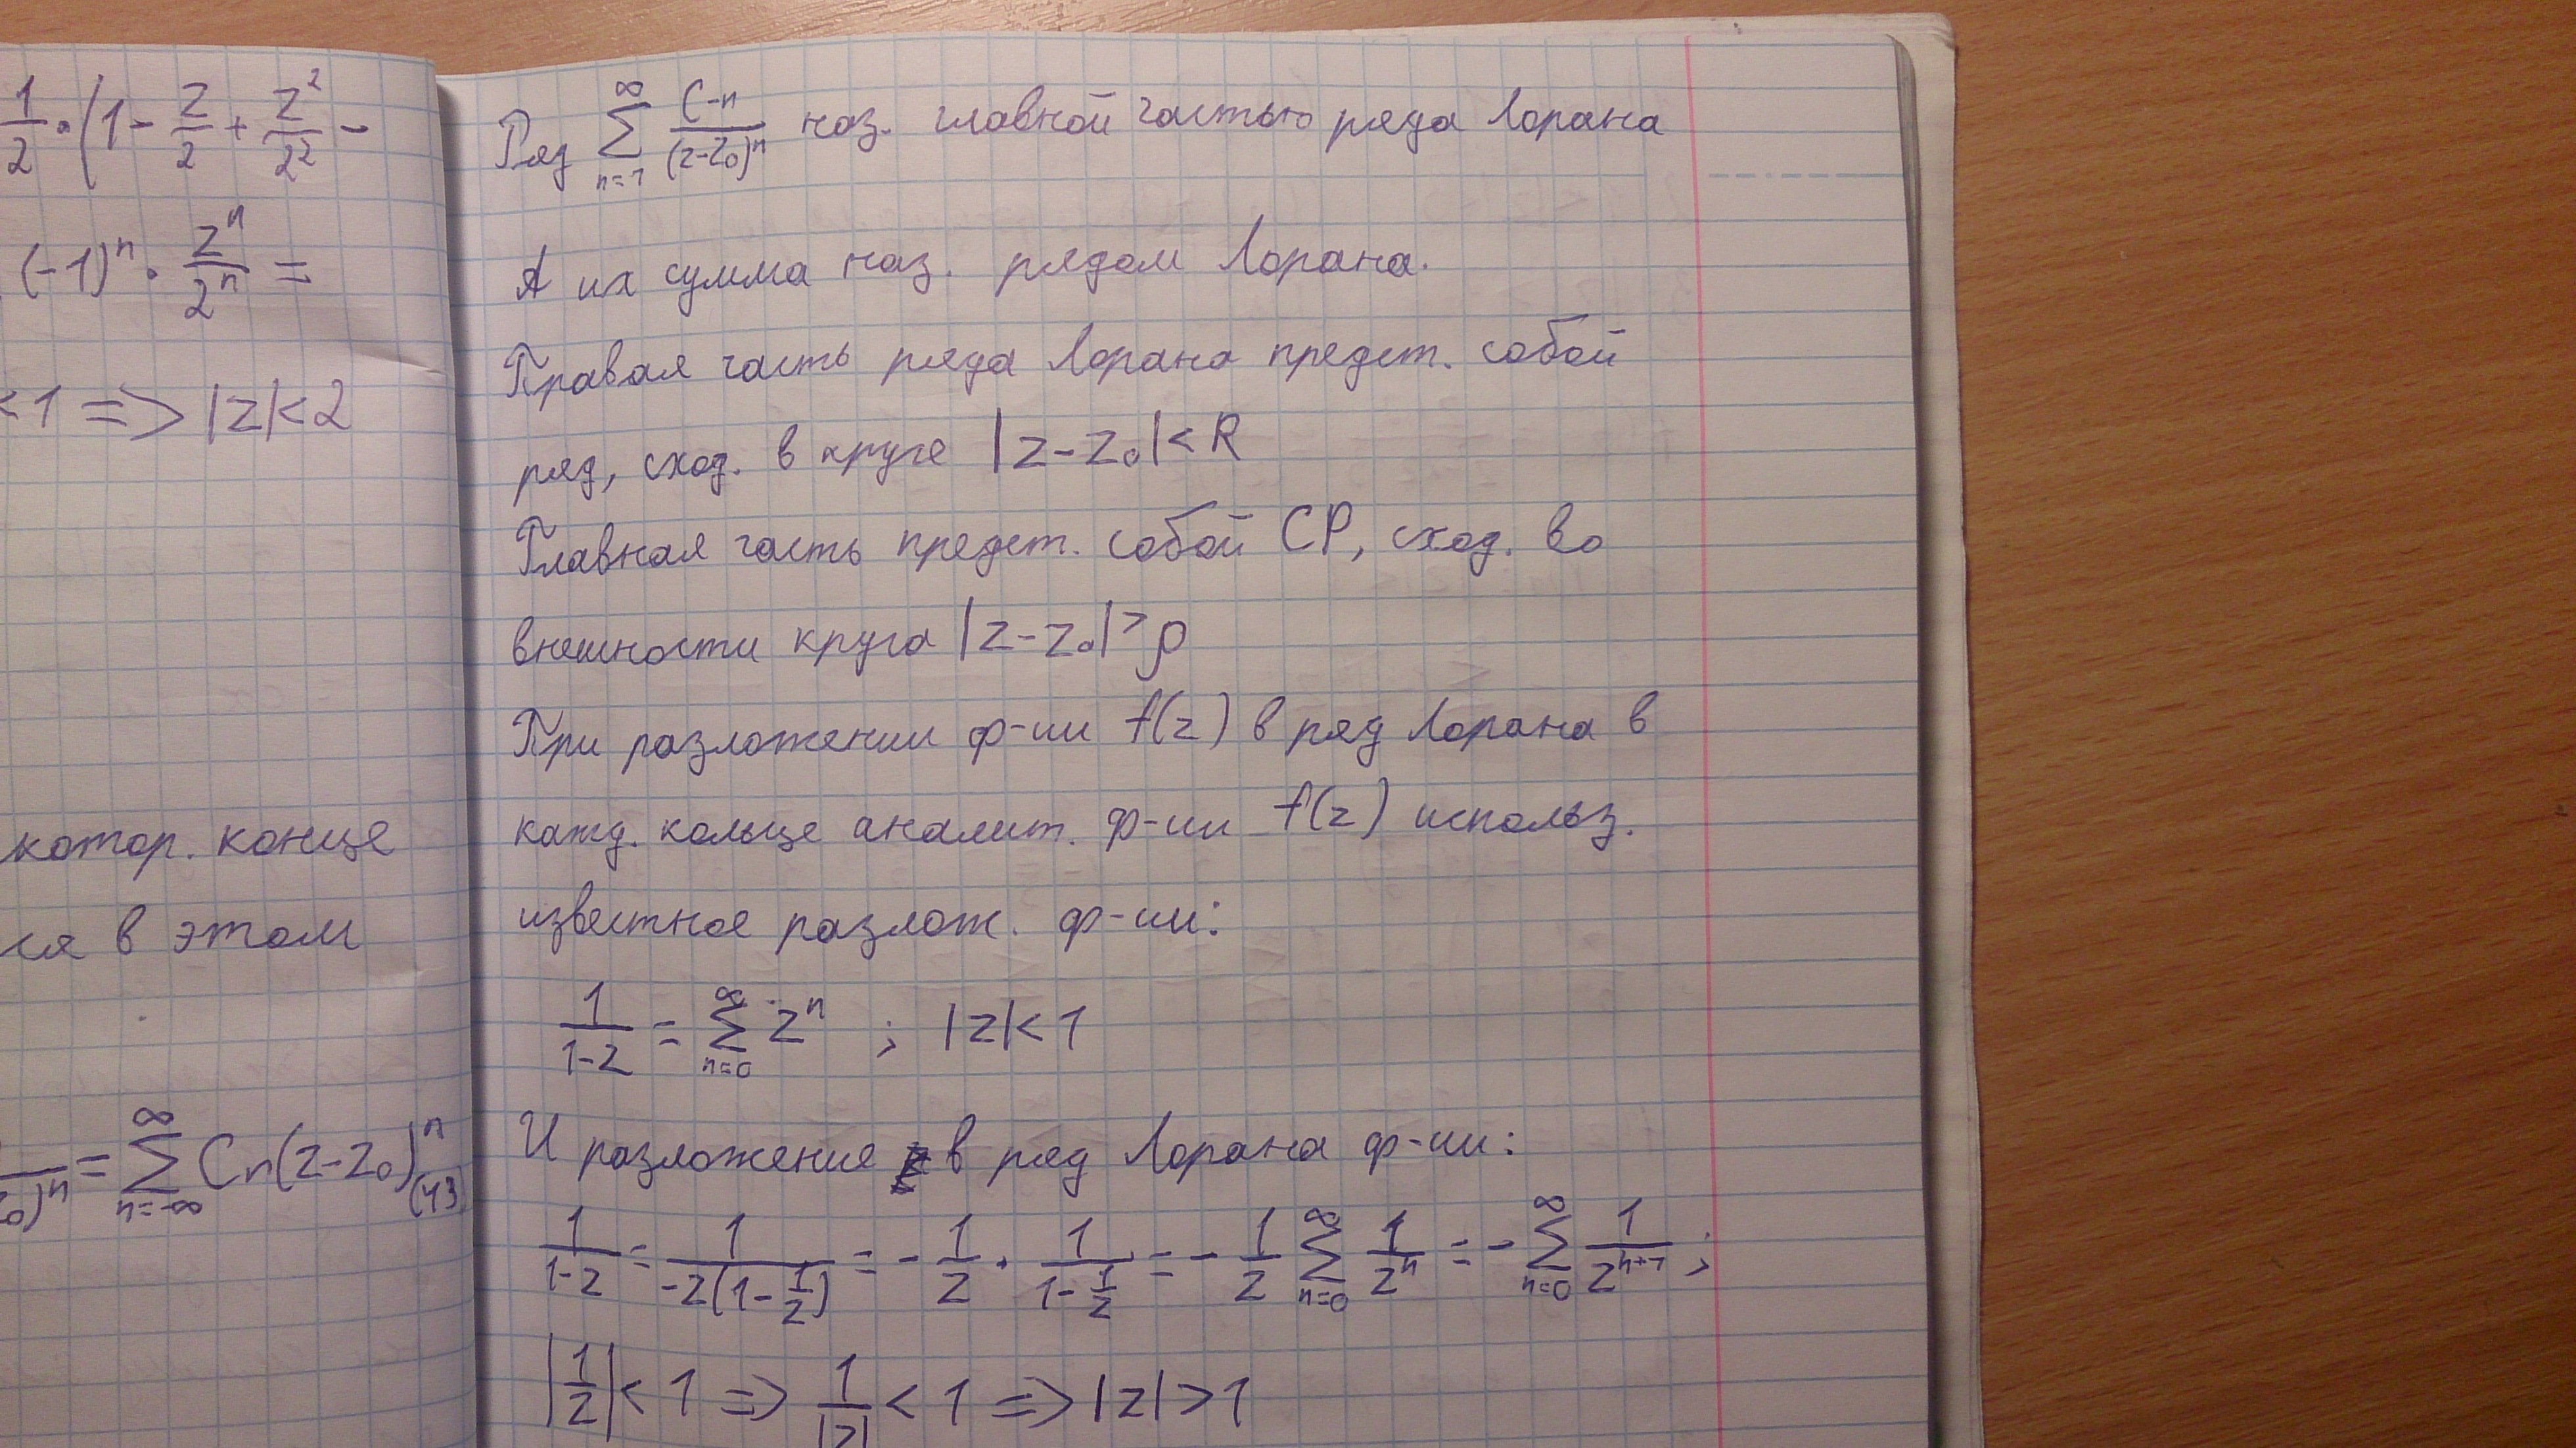 1/2 · (1 - z/2 + z²/2² -
(-1)ⁿ · zⁿ/2ⁿ =
<1 => |z|<2
котор. конце
ся в этом
0)ⁿ = ∑_{n=-∞}^{∞} Cn(z-z₀)ⁿ (43)
Ряд ∑_{n=1}^{∞} C-n/(z-z₀)ⁿ наз. главной частью ряда Лорана
А их сумма наз. рядом Лорана.
Правая часть ряда Лорана предст. собой
ряд, сход. в круге |z-z₀|<R
Главная часть предст. собой СР, сход. во
внешности круга |z-z₀|>ρ
При разложении ф-ии f(z) в ряд Лорана в
кажд. кольце аналит. ф-ии f(z) использ.
известное разлож. ф-ии:
1/(1-z) = ∑_{n=0}^{∞} zⁿ ; |z|<1
И разложение в ряд Лорана ф-ии:
1/(1-z) = 1/(-z(1-1/z)) = -1/z · 1/(1-1/z) = -1/z ∑_{n=0}^{∞} 1/zⁿ = -∑_{n=0}^{∞} 1/zⁿ⁺¹ ;
|1/z|<1 => 1/|z| < 1 => |z|>1